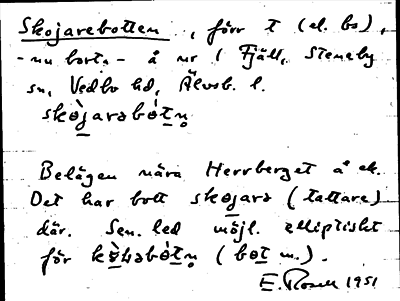 Skojarebotten, förr t (el. bs),
- nu borta - å nr 1 Fjäll, Steneby
sn, Vedbo hd, Älvsb. l.
skòjarəbót​n̥
Belägen nära Herrberget å ek.
Det har bott skojarə (tattare)
där. Sen. led möjl. elliptiskt
för (bot m.).
E. Rosell 1951